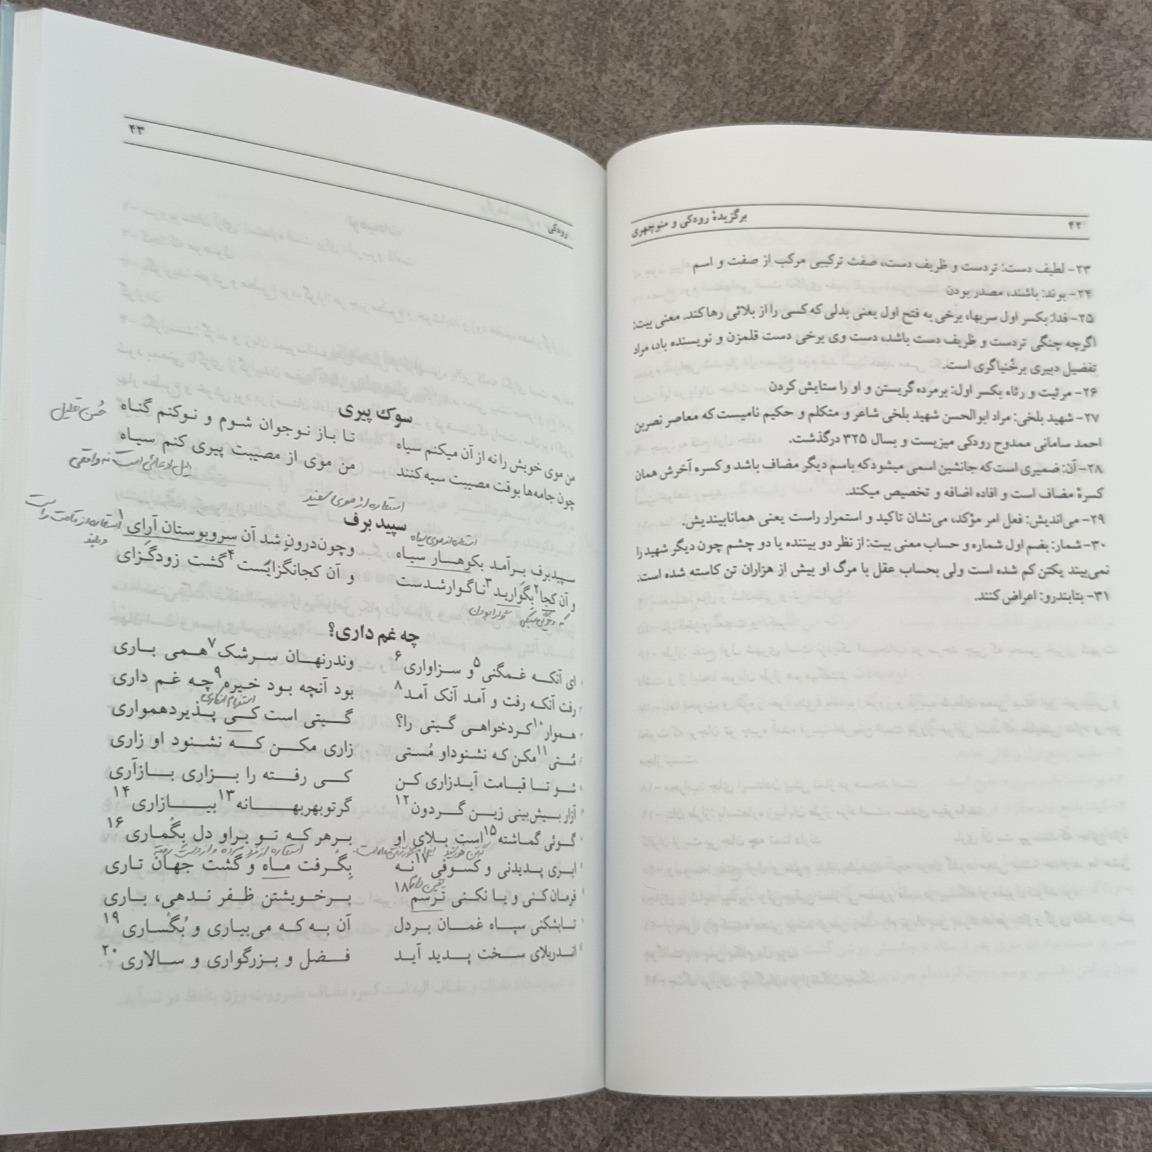 ۴۲ برگزیدهٔ رودکی و منوچهری
۲۳- لطیف دست: تردست و ظریف دست، صفت ترکیبی مرکب از صفت و اسم
۲۴- بوند: باشند، مصدر بودن
۲۵- فدا: بکسر اول سربها، برخی به فتح اول یعنی بدلی که کسی را از بلائی رها کند. معنی بیت:
اگرچه چنگی تردست و ظریف دست باشد، دست وی برخی دست قلمزن و نویسنده باد، مراد
تفضیل دبیری برخُنیاگری است.
۲۶- مرثیت و رثاء بکسر اول: برمرده گریستن و او را ستایش کردن
۲۷- شهید بلخی: مراد ابوالحسن شهید بلخی شاعر و متکلم و حکیم نامیست که معاصر نصربن
احمد سامانی ممدوح رودکی میزیست و بسال ۳۲۵ درگذشت.
۲۸- آن: ضمیری است که جانشین اسمی میشود که باسم دیگر مضاف باشد و کسره آخرش همان
کسرهٔ مضاف است و افاده اضافه و تخصیص میکند.
۲۹- می‌اندیش: فعل امر مؤکد، می‌نشان تاکید و استمرار راست یعنی همانابیندیش.
۳۰- شمار: بضم اول شماره و حساب معنی بیت: از نظر دو بیننده یا دو چشم چون دیگر شهید را
نمی‌بیند یکتن کم شده است ولی بحساب عقل با مرگ او بیش از هزاران تن کاسته شده است.
۳۱- بتابندرو: اعراض کنند.
رودکی ۴۳
سوک پیری
من موی خویش را نه از آن میکنم سیاه تا باز نوجوان شوم و نوکنم گناه
حُسن تعلیل
چون جامه‌ها بوقت مصیبت سیه کنند من موی از مصیبت پیری کنم سیاه
دلیل ادعائی است نه واقعی
استعاره از موی سفید
سپید برف
استعاره از موی سیاه
سپیدبرف برآمد بکوهسار سیاه وچون‌درونِ شد آن سروبوستان آرای۱
استعاره از قامت راست
و آن کجا۲ بگوارید۳ ناگوارشدست و آن کجانگزایَست۴ گشت زودگَزای
چه غم داری؟
ای آنکه غمگنی۵ و سزاواری۶ وندرنهان سرشک۷ همی باری
رفت آنکه رفت و آمد آنک آمد۸ بود آنچه بود خیره۹ چه غم داری
استفهام انکاری
هموار۱۰ کردخواهی گیتی را؟ گیتی است کی پذیردهمواری
مُستی۱۱ مکن که نشنوداو مُستی زاری مکن که نشنود او زاری
شو تا قیامت آیدزاری کن کی رفته را بزاری بازآری
آزار بیش‌بینی زین گردون۱۲ گرتوبهربهانه۱۳ بیازاری۱۴
گوئی گماشته۱۵ است بلای او برهرکه تو براو دل بِگُماری۱۶
ابری پدیدنی و کسوفی۱۷ نه بِگْرفت ماه و گشت جهان تاری
فرمان کنی و یا نکنی ترسم۱۸ برخویشتن ظفر ندهی، باری
تابشکنی سپاه غمان بردل آن به که می‌بیاری و بگساری۱۹
اندربلای سخت پدید آید فضل و بزرگواری و سالاری۲۰